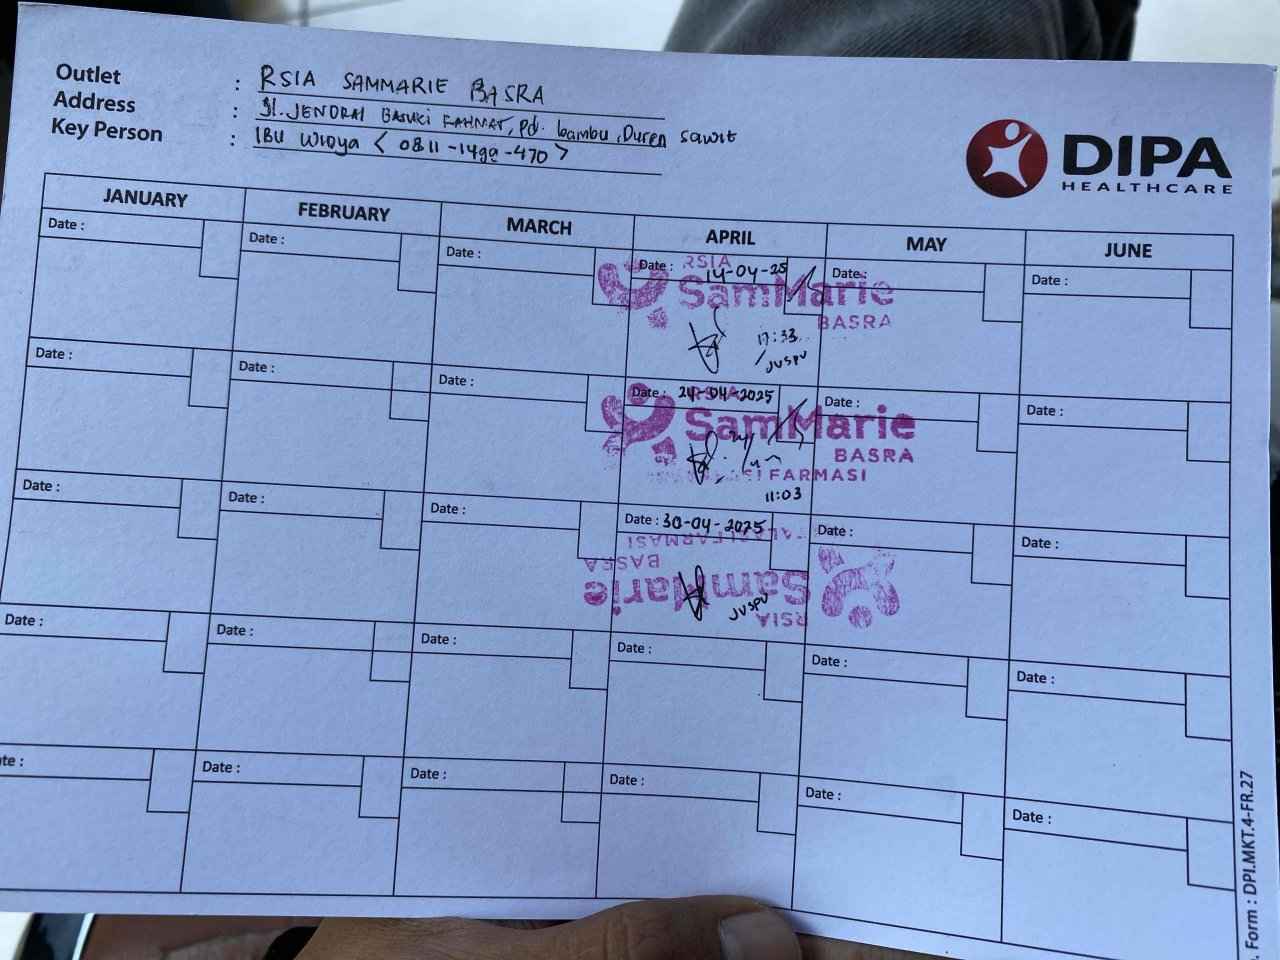 Outlet : RSIA SAMMARIE BASRA
Address : Jl. JENDRAL BASUKI RAHMAT, Pd. bambu, Duren sawit
Key Person : IBU WIDYA < 0811-1499-470 >
DIPA
HEALTHCARE
JANUARY FEBRUARY MARCH APRIL MAY JUNE
Date : Date : Date : Date : 14-04-25 Date : Date :
RSIA
SamMarie
BASRA
17:33
JUSPU
Date : Date : Date : Date : 24-04-2025 Date : Date :
RSIA
SamMarie
BASRA
SI FARMASI
11:03
Date : Date : Date : Date : 30-04-2025 Date : Date :
FARMASI
BASRA
SamMarie
RSIA
JUSPU
Date : Date : Date : Date : Date : Date :
te : Date : Date : Date : Date : Date :
Form : DPI.MKT.4-FR.27